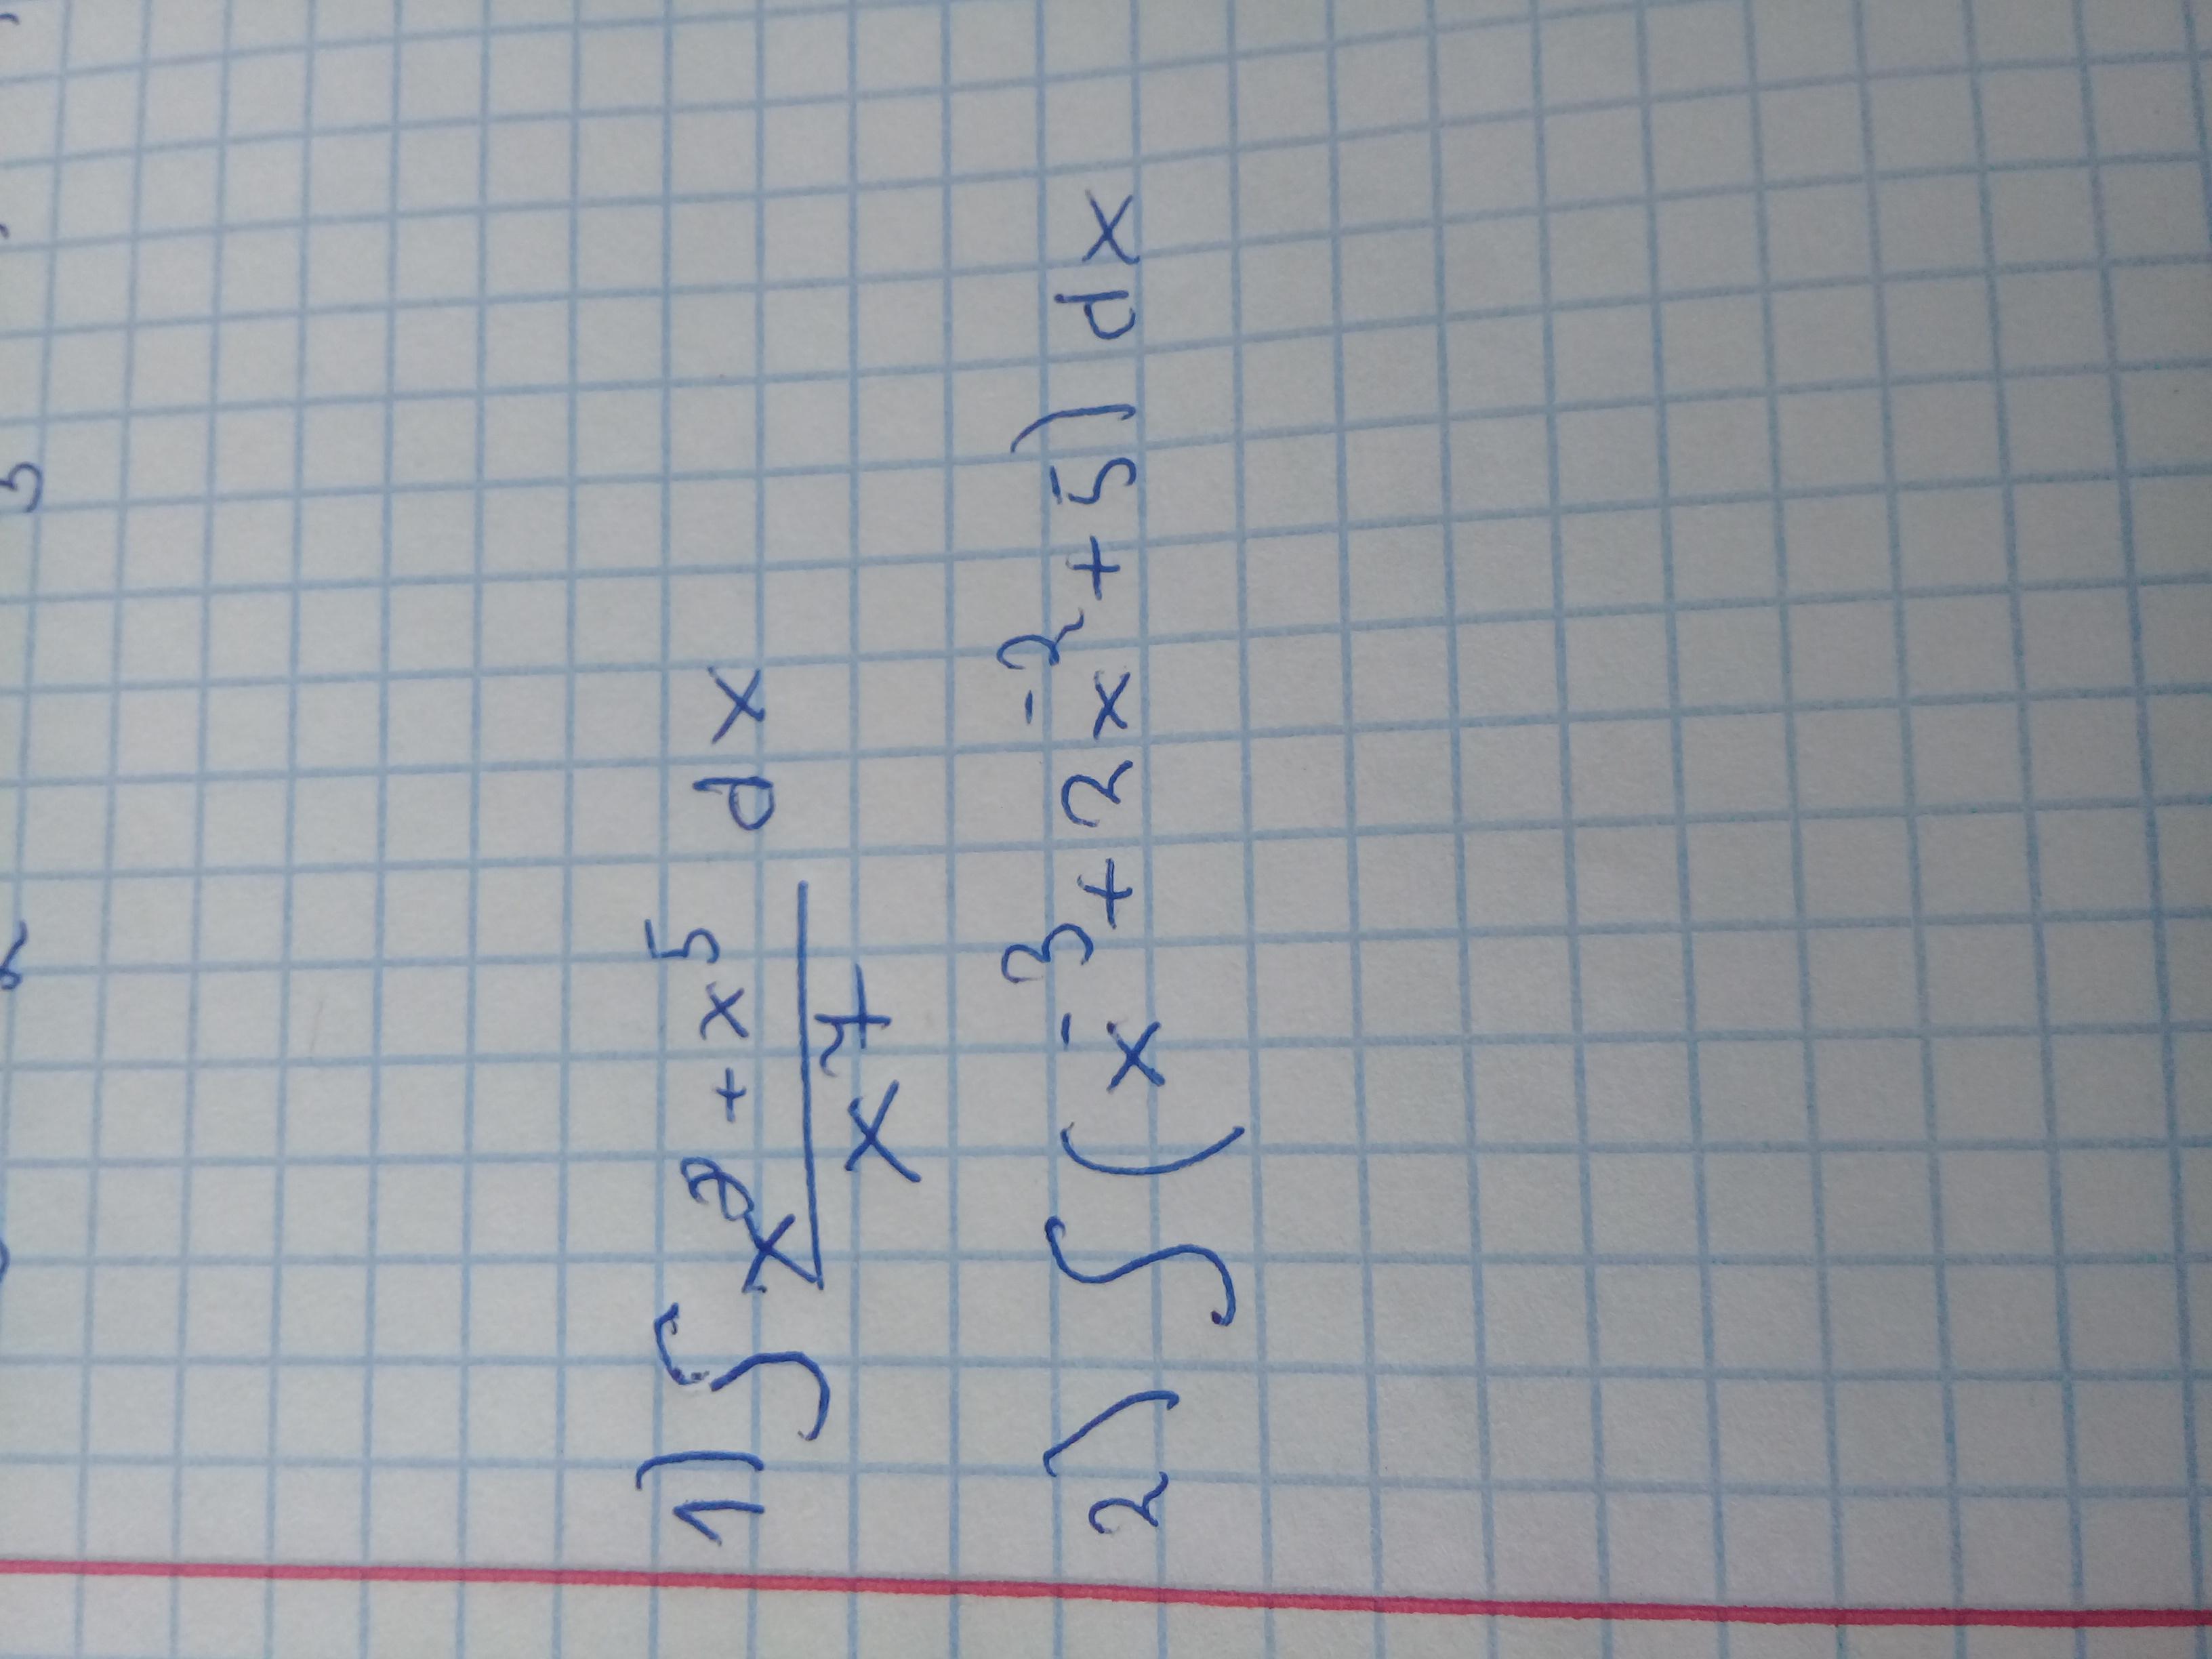 1) ∫ (x² + x⁵)/x⁷ dx
2) ∫ (x⁻³ + 2x⁻² + 5) dx